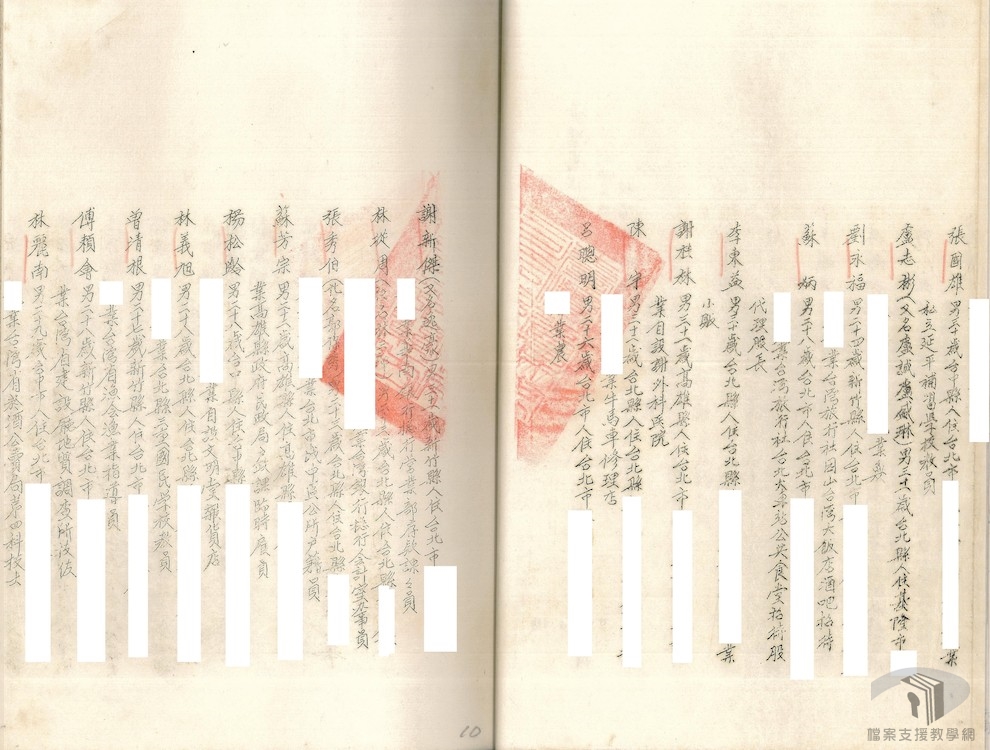 張國雄 男三十歲台中縣人住台北市 業
私立延平補習學校教員
盧志彬(又名盧誠盧誠琳)男三十一歲台北縣人住基隆市
業
劉永福 男二十四歲新竹縣人住台北市
業台灣旅行社圓山台灣大飯店酒吧招待
蘇炳 男二十八歲台北市人住台北市
業台灣旅行社台北火車站公共食堂招待股
代理股長
李東益 男三十歲台北縣人住台北縣 業
小販
謝桂林 男三十一歲高雄縣人住台北市
業自設謝外科醫院
陳 男三十一歲台北縣人住台北縣
業牛馬車修理店
呂聰明 男二十六歲台北市人住台北市
業農
謝新傑(又名 歲新竹縣人住台北市
業 營業部存款課課員
林從周 歲台北縣人住台北縣
銀行會計室雇員
張秀伯(化名 歲台北縣人住台北縣
業台北市 中區公所戶籍員
蘇芳宗 男二十六歲高雄縣人住高雄縣
業高雄縣政府民政局 課臨時雇員
楊松齡 男二十八歲台 縣人住台北市
業自設文明堂雜貨店
林義旭 男二十八歲台北縣人住台北縣
業台北縣三重國民學校教員
曾清根 男二十七歲新竹縣人住台北市
業台灣省漁會漁業指導員
傅賴會 男二十八歲新竹縣人住台北市
業台灣省建設廳地質調查所技佐
林麗南 男二十九歲台中市人住台北市
業台灣省菸酒公賣局第四科技士
10
檔案支援教學網